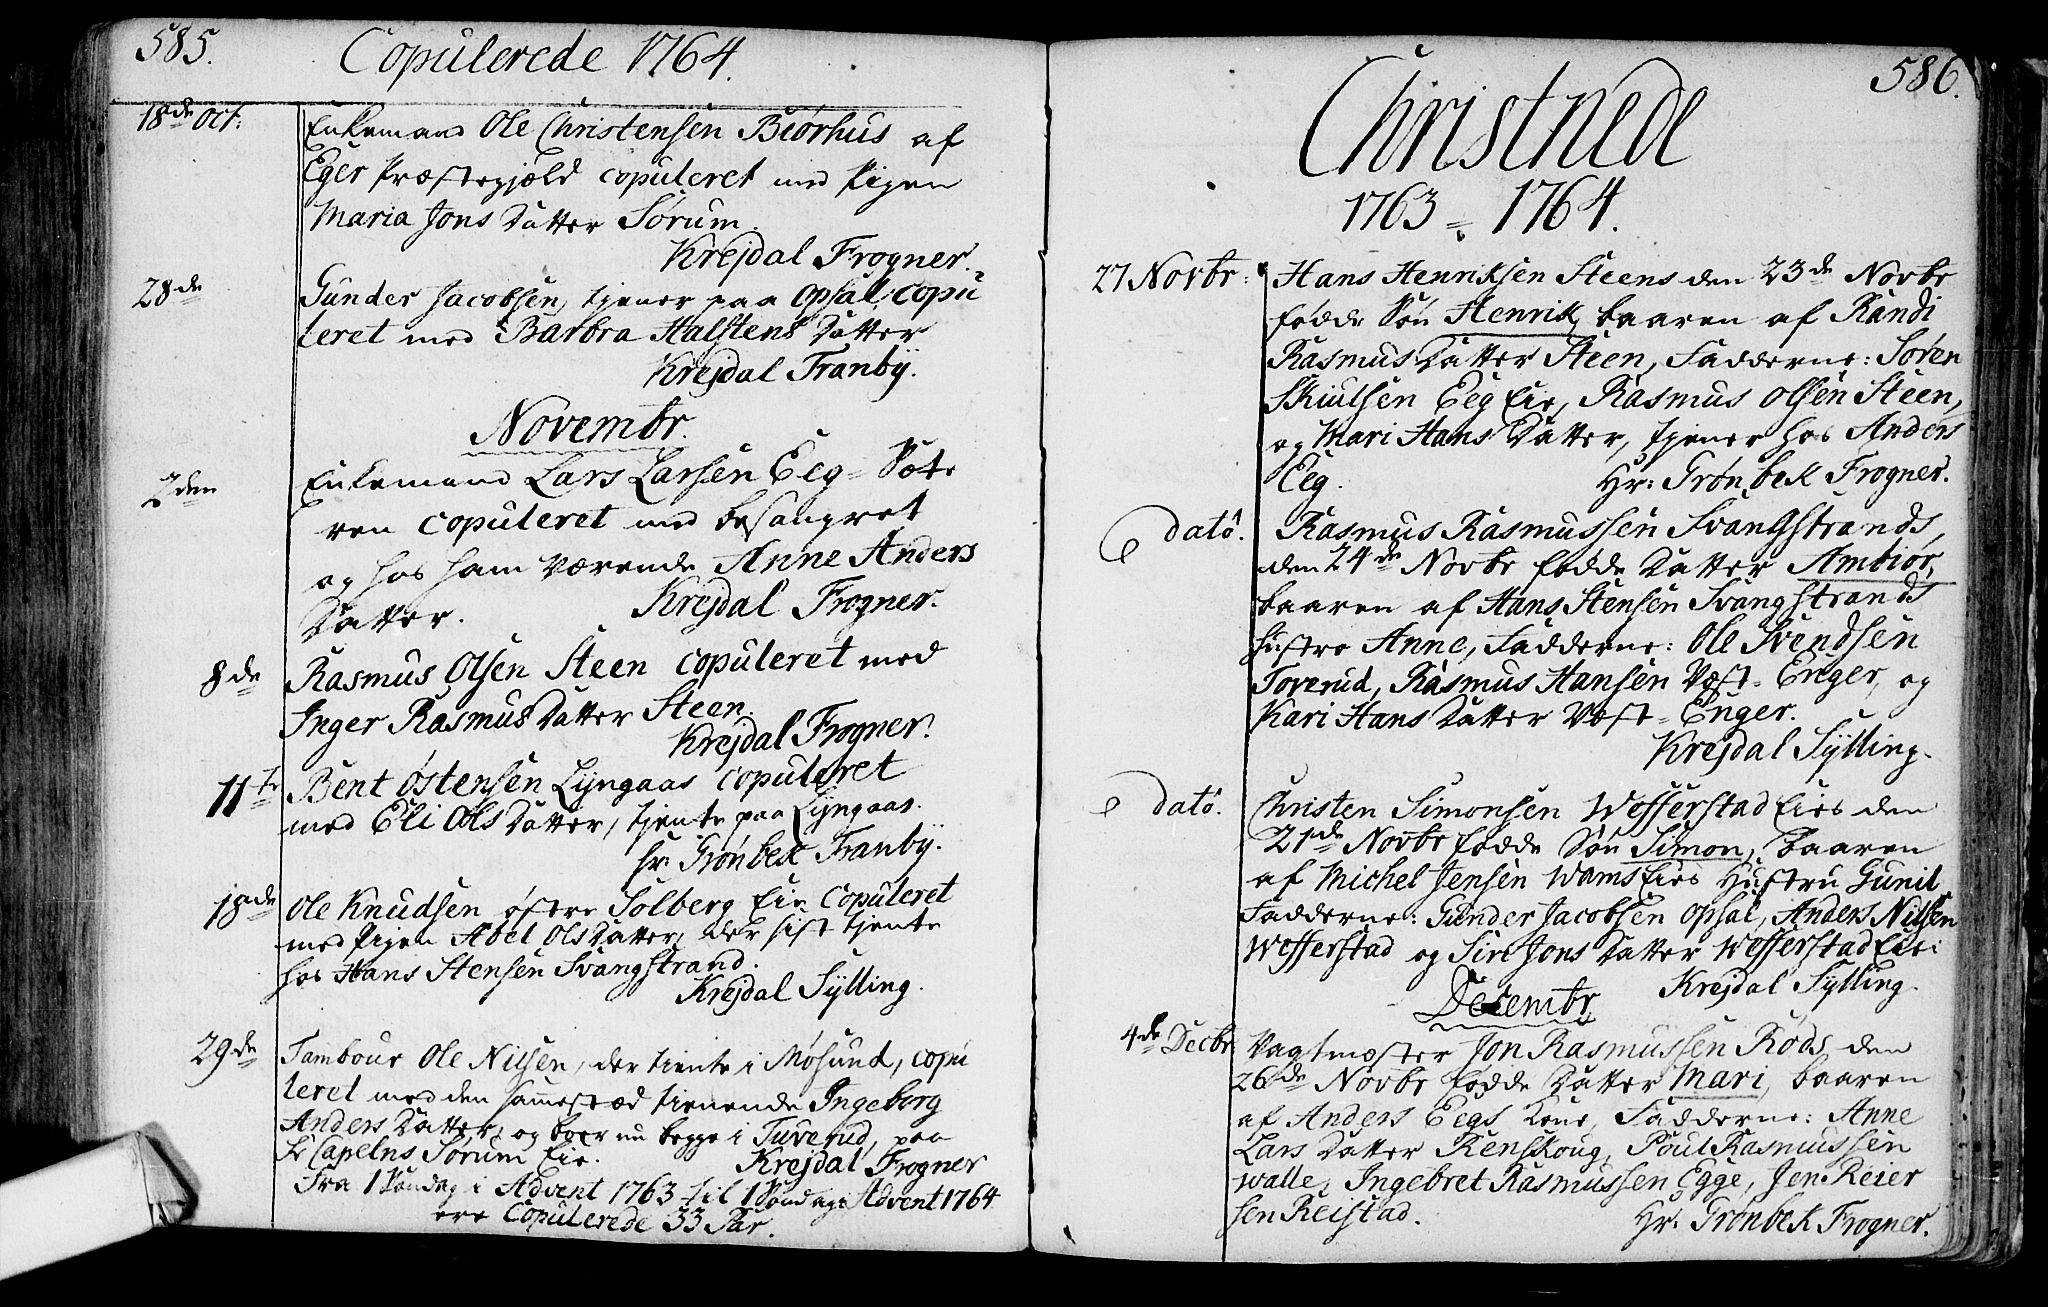 585.
Copulerede 1764.
18de Oct:
Enkemand Ole Christensen Biørhus af
Eger Præstegjæld copuleret med Pigen
Maria Jons Datter Sørum.
Krejdal Frogner.
28de
Gunder Jacobsen, tjener paa Opsal, copu
leret med Barbra Halstens Datter
Krejdal Tranbÿ.
Novembr.
2den
Enkemand Lars Larsen Eeg-Sæte
ren copuleret med besangret
og hos ham værende Anne Anders
Datter. Krejdal Frogner.
8de
Rasmus Olsen Steen copuleret med
Inger Rasmus Datter Steen.
Krejdal Frogner.
11te
Bent Østensen Lÿngaas copuleret
med Eli Ols Datter, tjente paa Lÿngaas.
hr. Grønbek Tranbÿ.
18de
Ole Knudsen østre Solberg Eie Copuleret
med Pigen Abel Ols Datter, der sist tjente
hos Hans Stensen Svangstrand.
Krejdal Sÿlling.
29de
Tambour Ole Nilsen, der tiente i Møsund, copu
leret med den sammested tienende Ingeborg
Anders Datter, og boer nu begge i Tuverud, paa
Sr Capelns Sørum Eie. Krejdal Frogner
Fra 1 Søndag i Advent 1763 til 1 Søndag i Advent 1764
ere Copulerede 33 Par.
586.
Christnede
1763 = 1764.
27 Novbr:
Hans Henriksen Steens den 23de Novbr
fødde Søn Henrik, baaren af Randi
Rasmus Datter Steen, Fadderne: Søren
Skiulsen Eeg Eie, Rasmus Olsen Steen,
og Mari Hans Datter, tjener hos Anders
Eeg. Hr: Grønbek Frogner.
dato.
Rasmus Rasmussen Svangstrands,
den 24de Novbr fødde Datter Ambiør,
baaren af Hans Stensen Svangstrands
hustro Anne, Fadderne: Ole Svendsen
Toverud, Rasmus Hansen Væst-Enger, og
Kari Hans Datter Væst-Enger.
Krejdal Sÿlling.
dato.
Christen Simonsen Wefferstad Eies den
21de Novbr fødde Søn Simon, baaren
af Michel Jensen Wams Eies Hustru Gunil,
Fadderne: Gunder Jacobsen Opsal, Anders Nilsen
Wefferstad og Siri Jons Datter Wefferstad Eie:
Krejdal Sÿlling.
Decembr
4de Decbr
Vagtmæster Jon Rasmussen Røds den
26de Novbr fødde Datter Mari, baaren
af Anders Eegs Kone, Fadderne: Anne
Lars Datter Renskoug, Poul Rasmussen
Walle, Ingebret Rasmussen Egge, Jen Reier
sen Reistad. Hr: Grønbek Frogner.